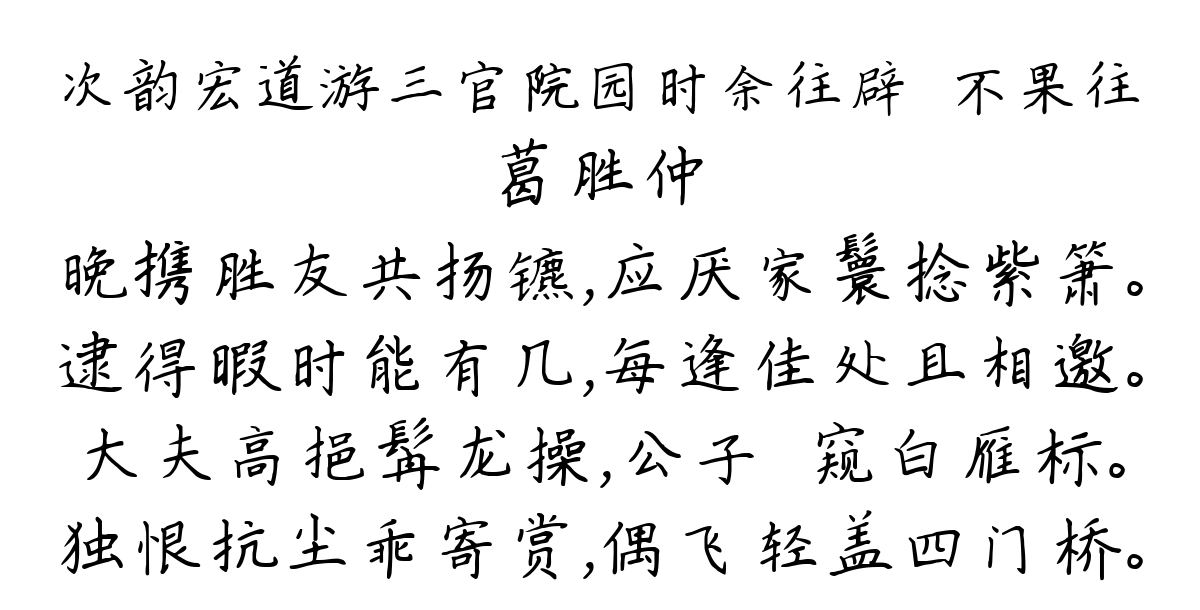 次韵宏道游三官院园时余往辟 不果往
葛胜仲
晚携胜友共扬镳,应厌家鬟捻紫箫。
逮得暇时能有几,每逢佳处且相邀。
大夫高挹髯龙操,公子 窥白雁标。
独恨抗尘乖寄赏,偶飞轻盖四门桥。